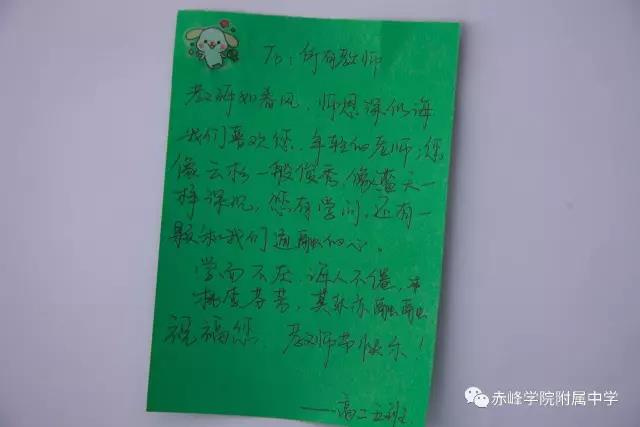 To：所有教师
教师如春风，师恩深似海
我们喜欢您，年轻的老师：您
像云松一般俊秀，像蓝天一
样深沉，您有学问，还有一
颗和我们通融的心。
学而不厌，诲人不倦，
桃李芬芳，其乐亦融融
祝福您 教师节快乐！
——高二五班
赤峰学院附属中学